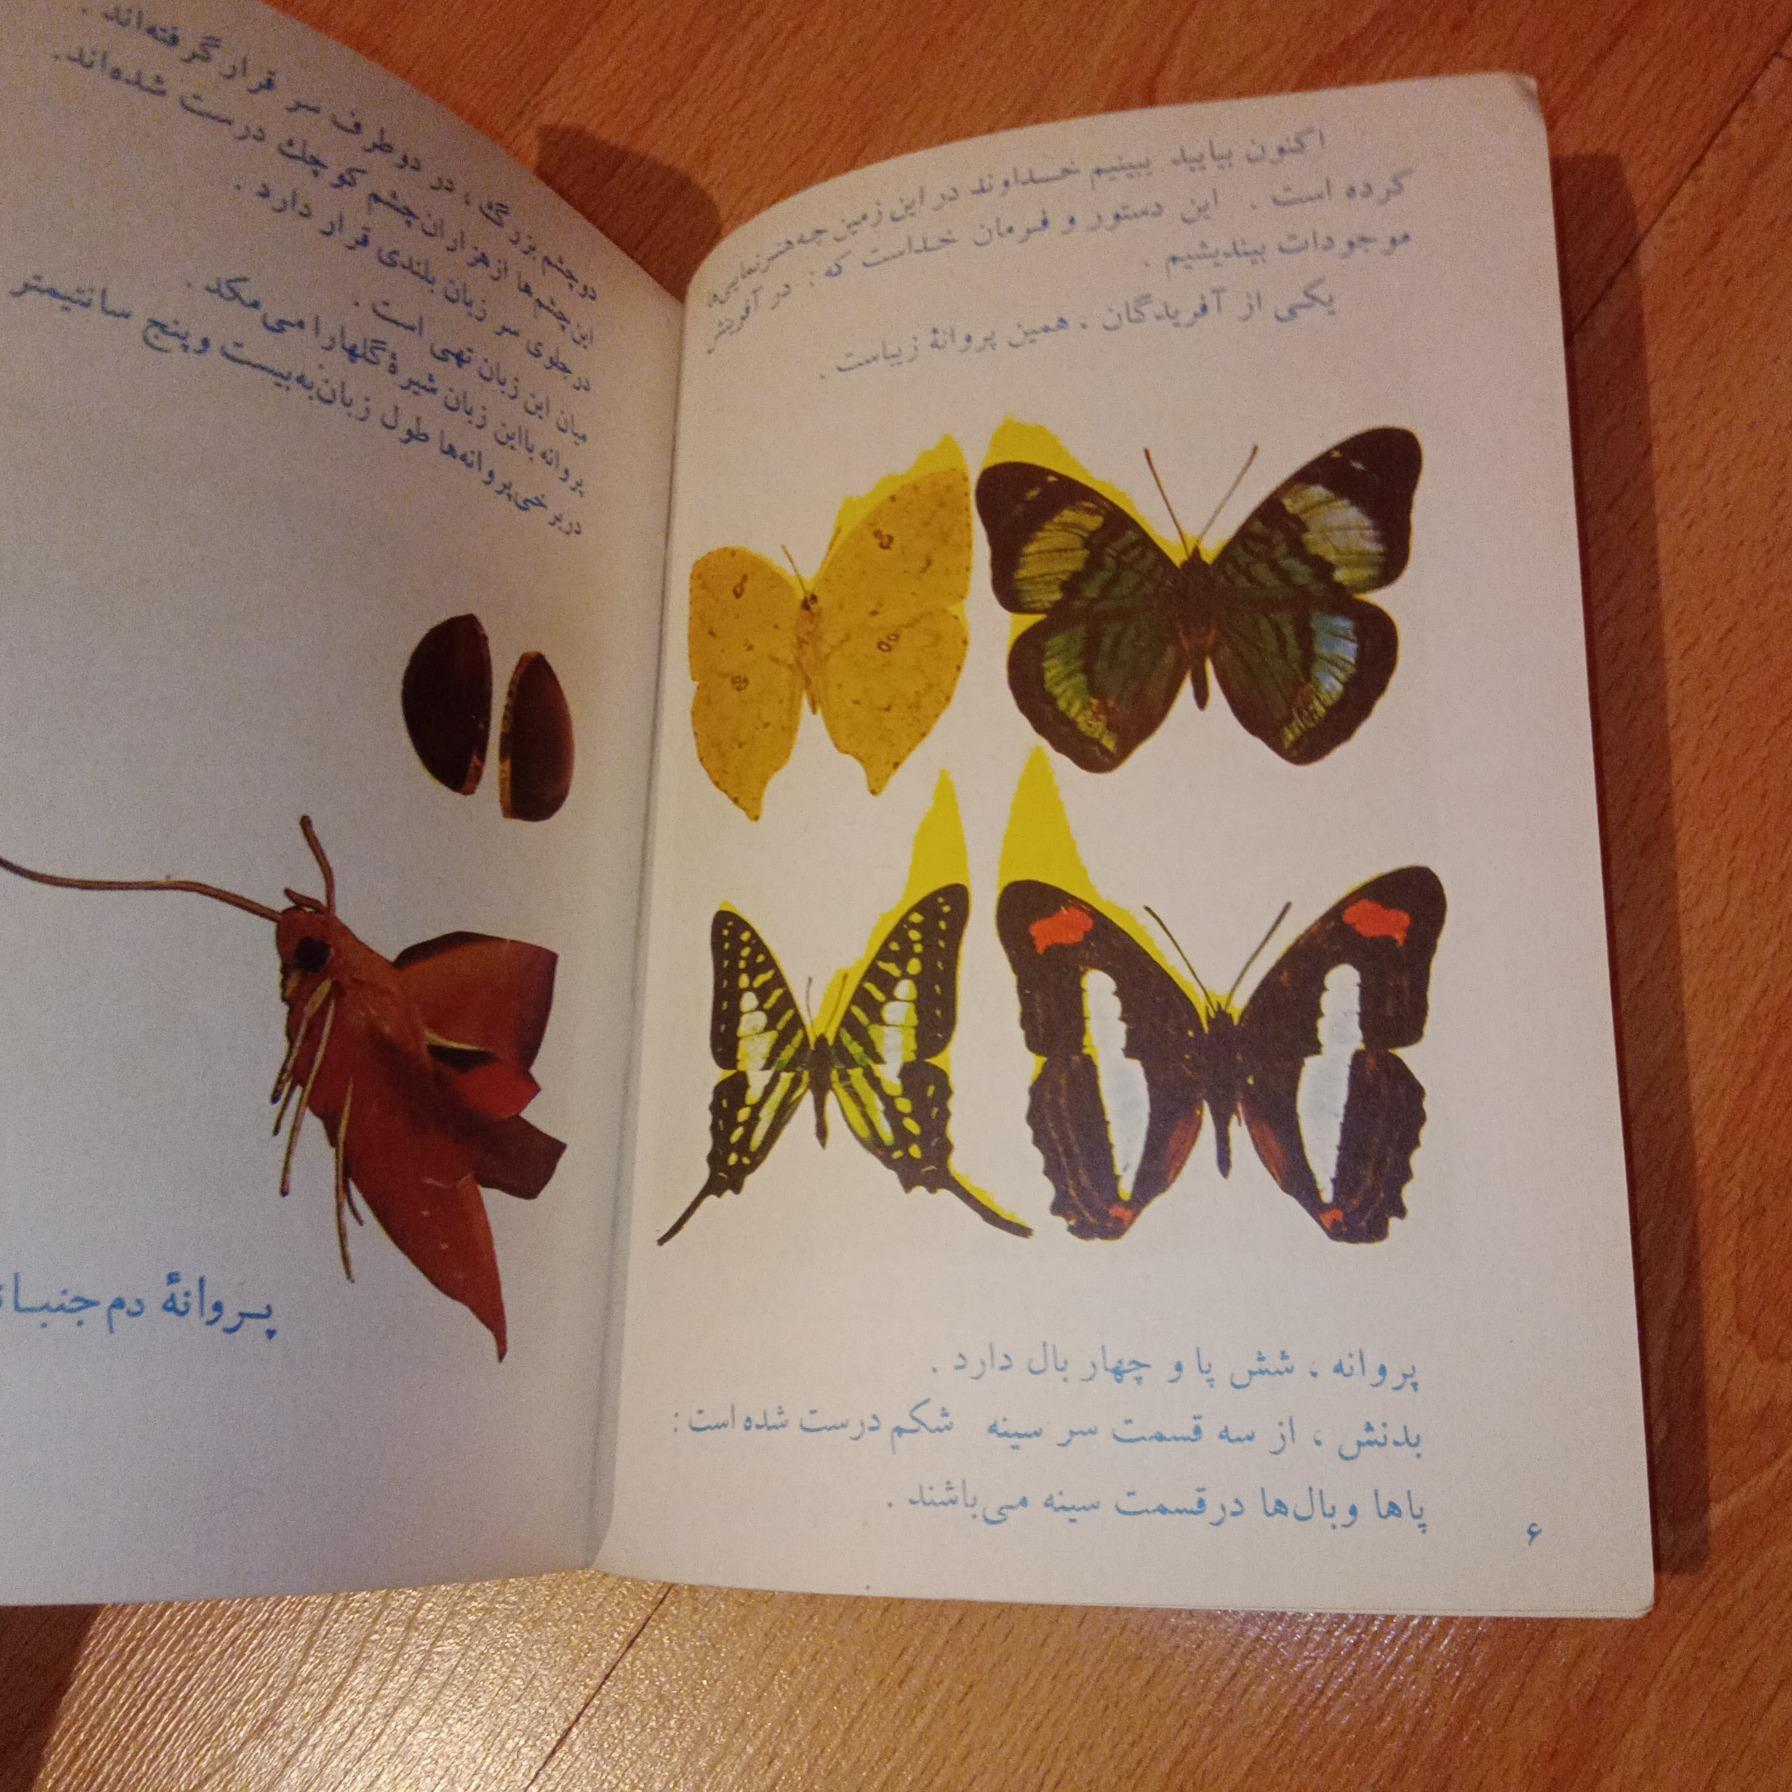 اکنون بیایید ببینیم خداوند در این زمین چه هنرنمایی‌ها
کرده است . این دستور و فرمان خداست که : در آفرینش
موجودات بیندیشیم .
یکی از آفریدگان ، همین پروانهٔ زیباست .
پروانه ، شش پا و چهار بال دارد .
بدنش ، از سه قسمت سر سینه شکم درست شده است :
پاها و بال‌ها در قسمت سینه می‌باشند .
۶
دو چشم بزرگ ، در دو طرف سر قرار گرفته‌اند .
این چشم‌ها از هزاران چشم کوچك درست شده‌اند .
در جلوی سر زبان بلندی قرار دارد .
میان این زبان تهی است .
پروانه با این زبان شیرهٔ گلها را می‌مکد .
در برخی پروانه‌ها طول زبان به بیست و پنج سانتیمتر
پروانهٔ دم